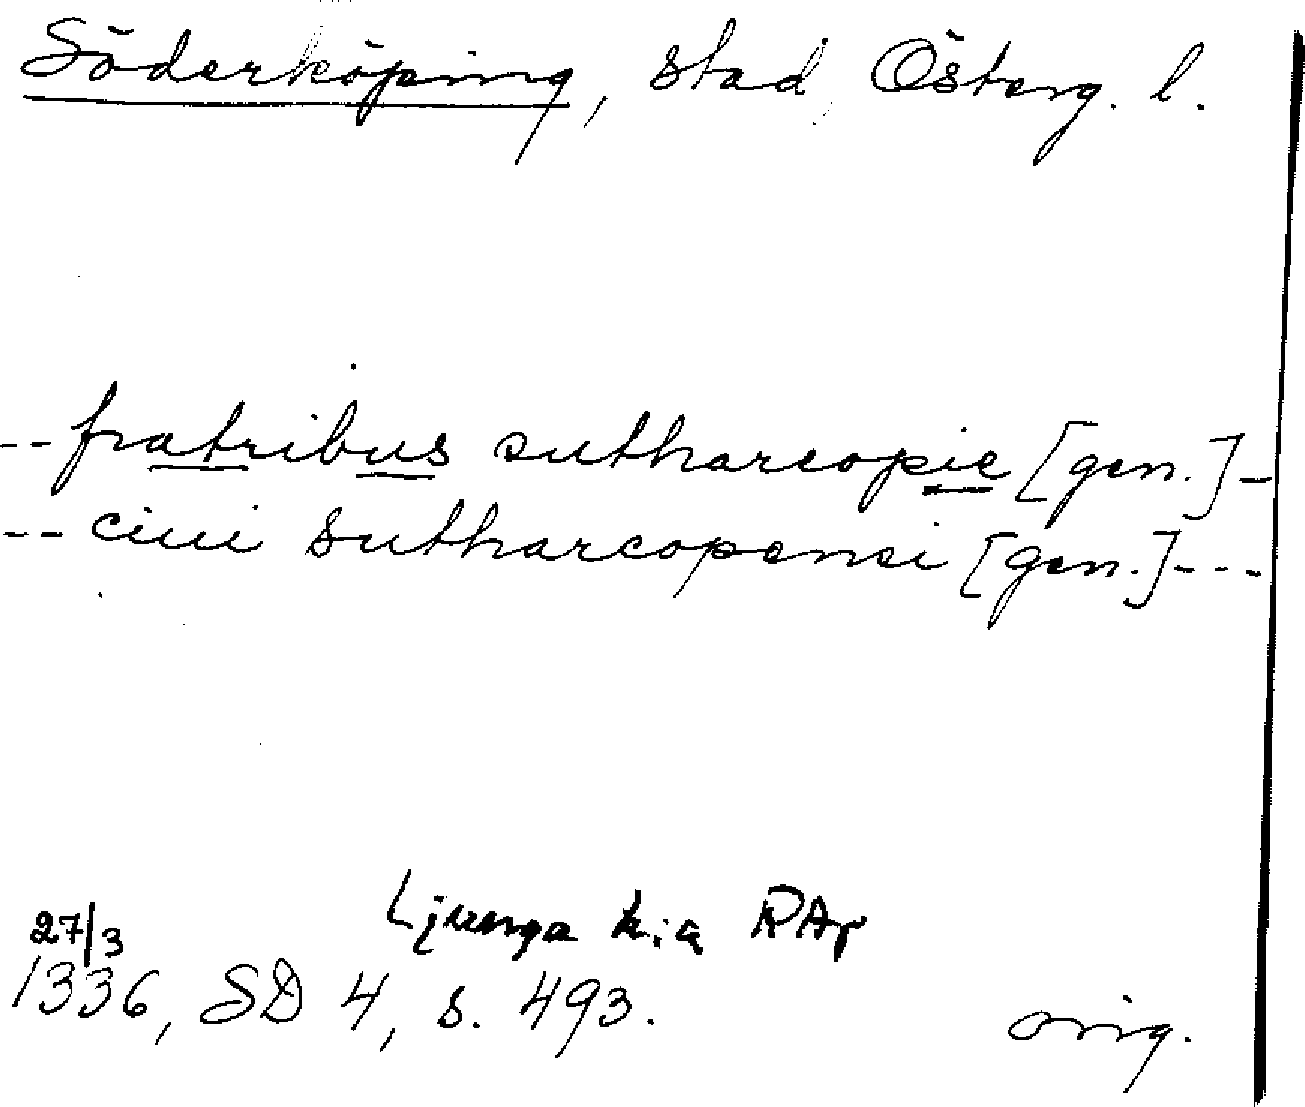 Söderköping, stad, Österg. l.
-- fratribus suthercopie [gen.] -
-- ciui suthercopensi [gen.] ---
27/3 Ljunga k:a RAp
1336, SD 4, s. 493. orig.